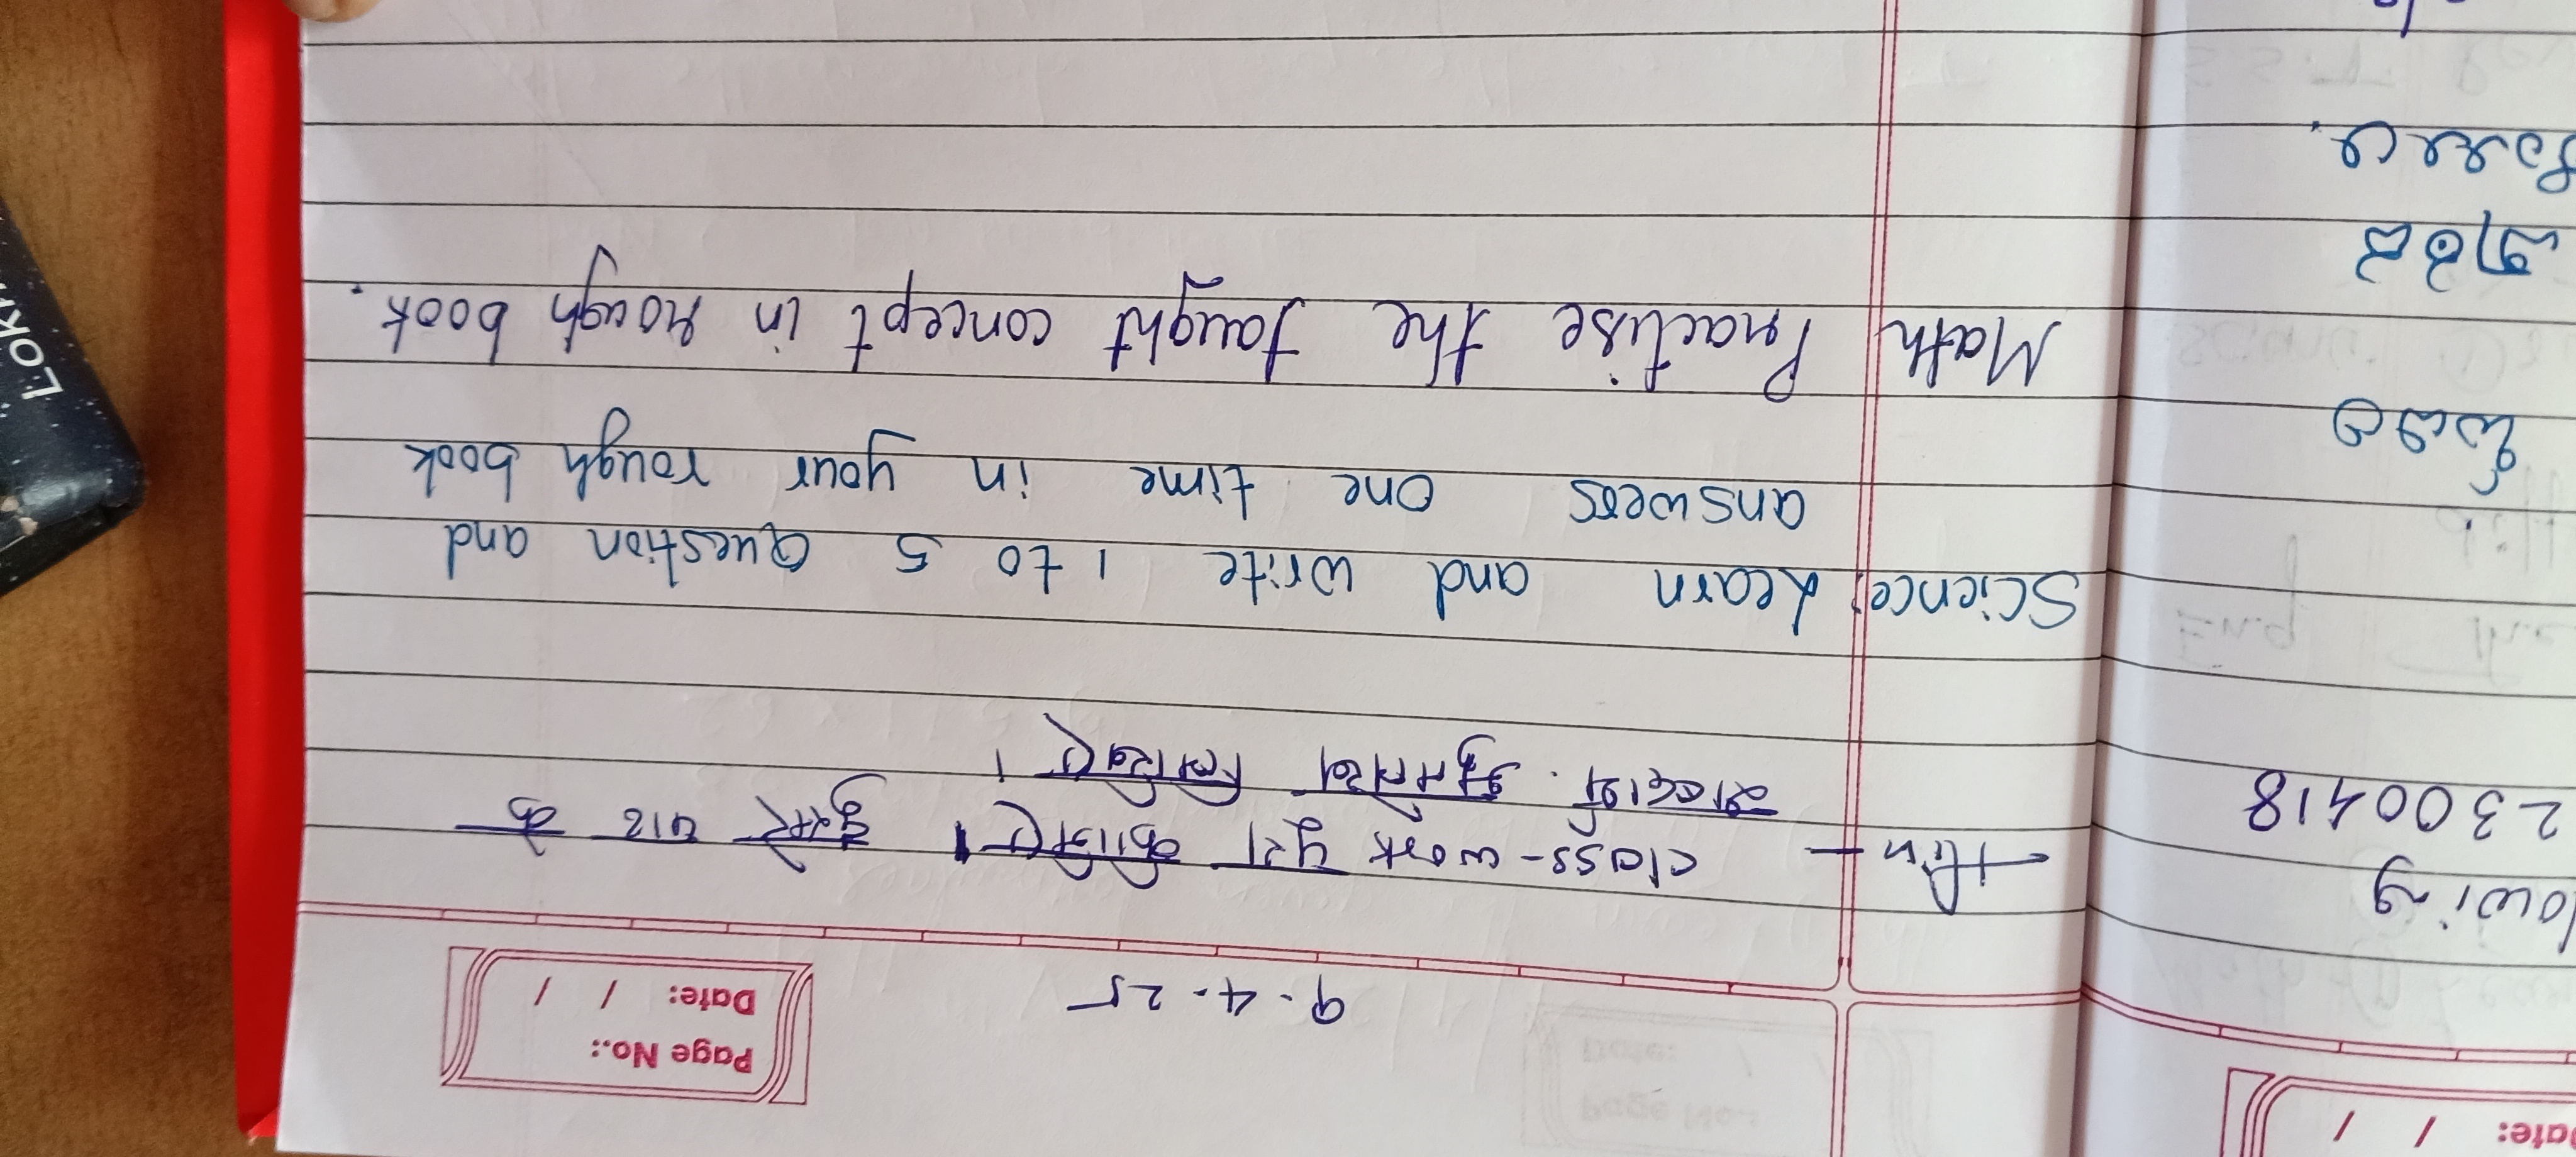 Date: / /
lowing
2300418
Page No.:
Date: / /
9.4.25
Hin - class-work पूरा कीजिए। पाठ के
शब्दार्थ. लिखिए।
Science: Learn and write 1 to 5 Question and
answers one time in your rough book
Math Practise the taught concept in rough book.